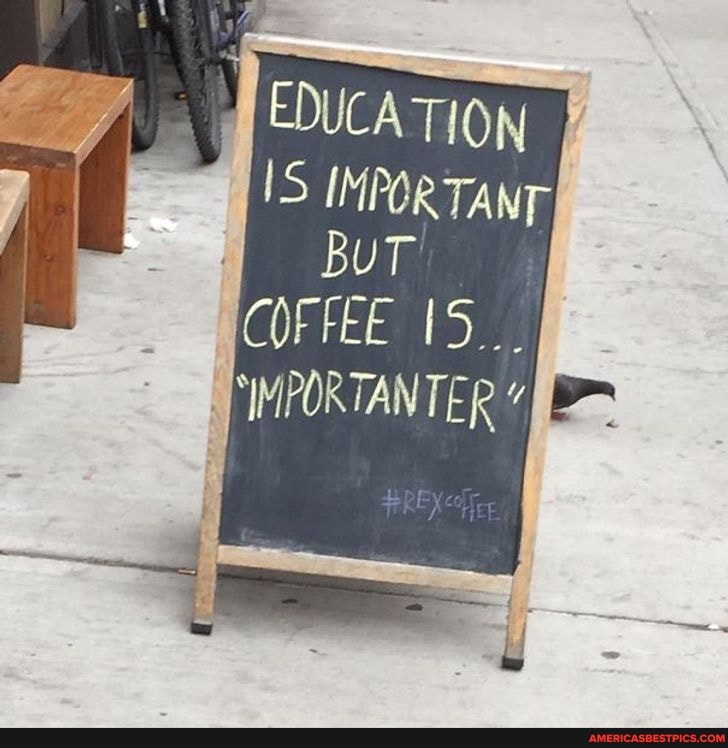 EDUCATION
IS IMPORTANT
BUT
COFFEE IS...
"IMPORTANTER"
#REXCOFFEE
AMERICASBESTPICS.COM